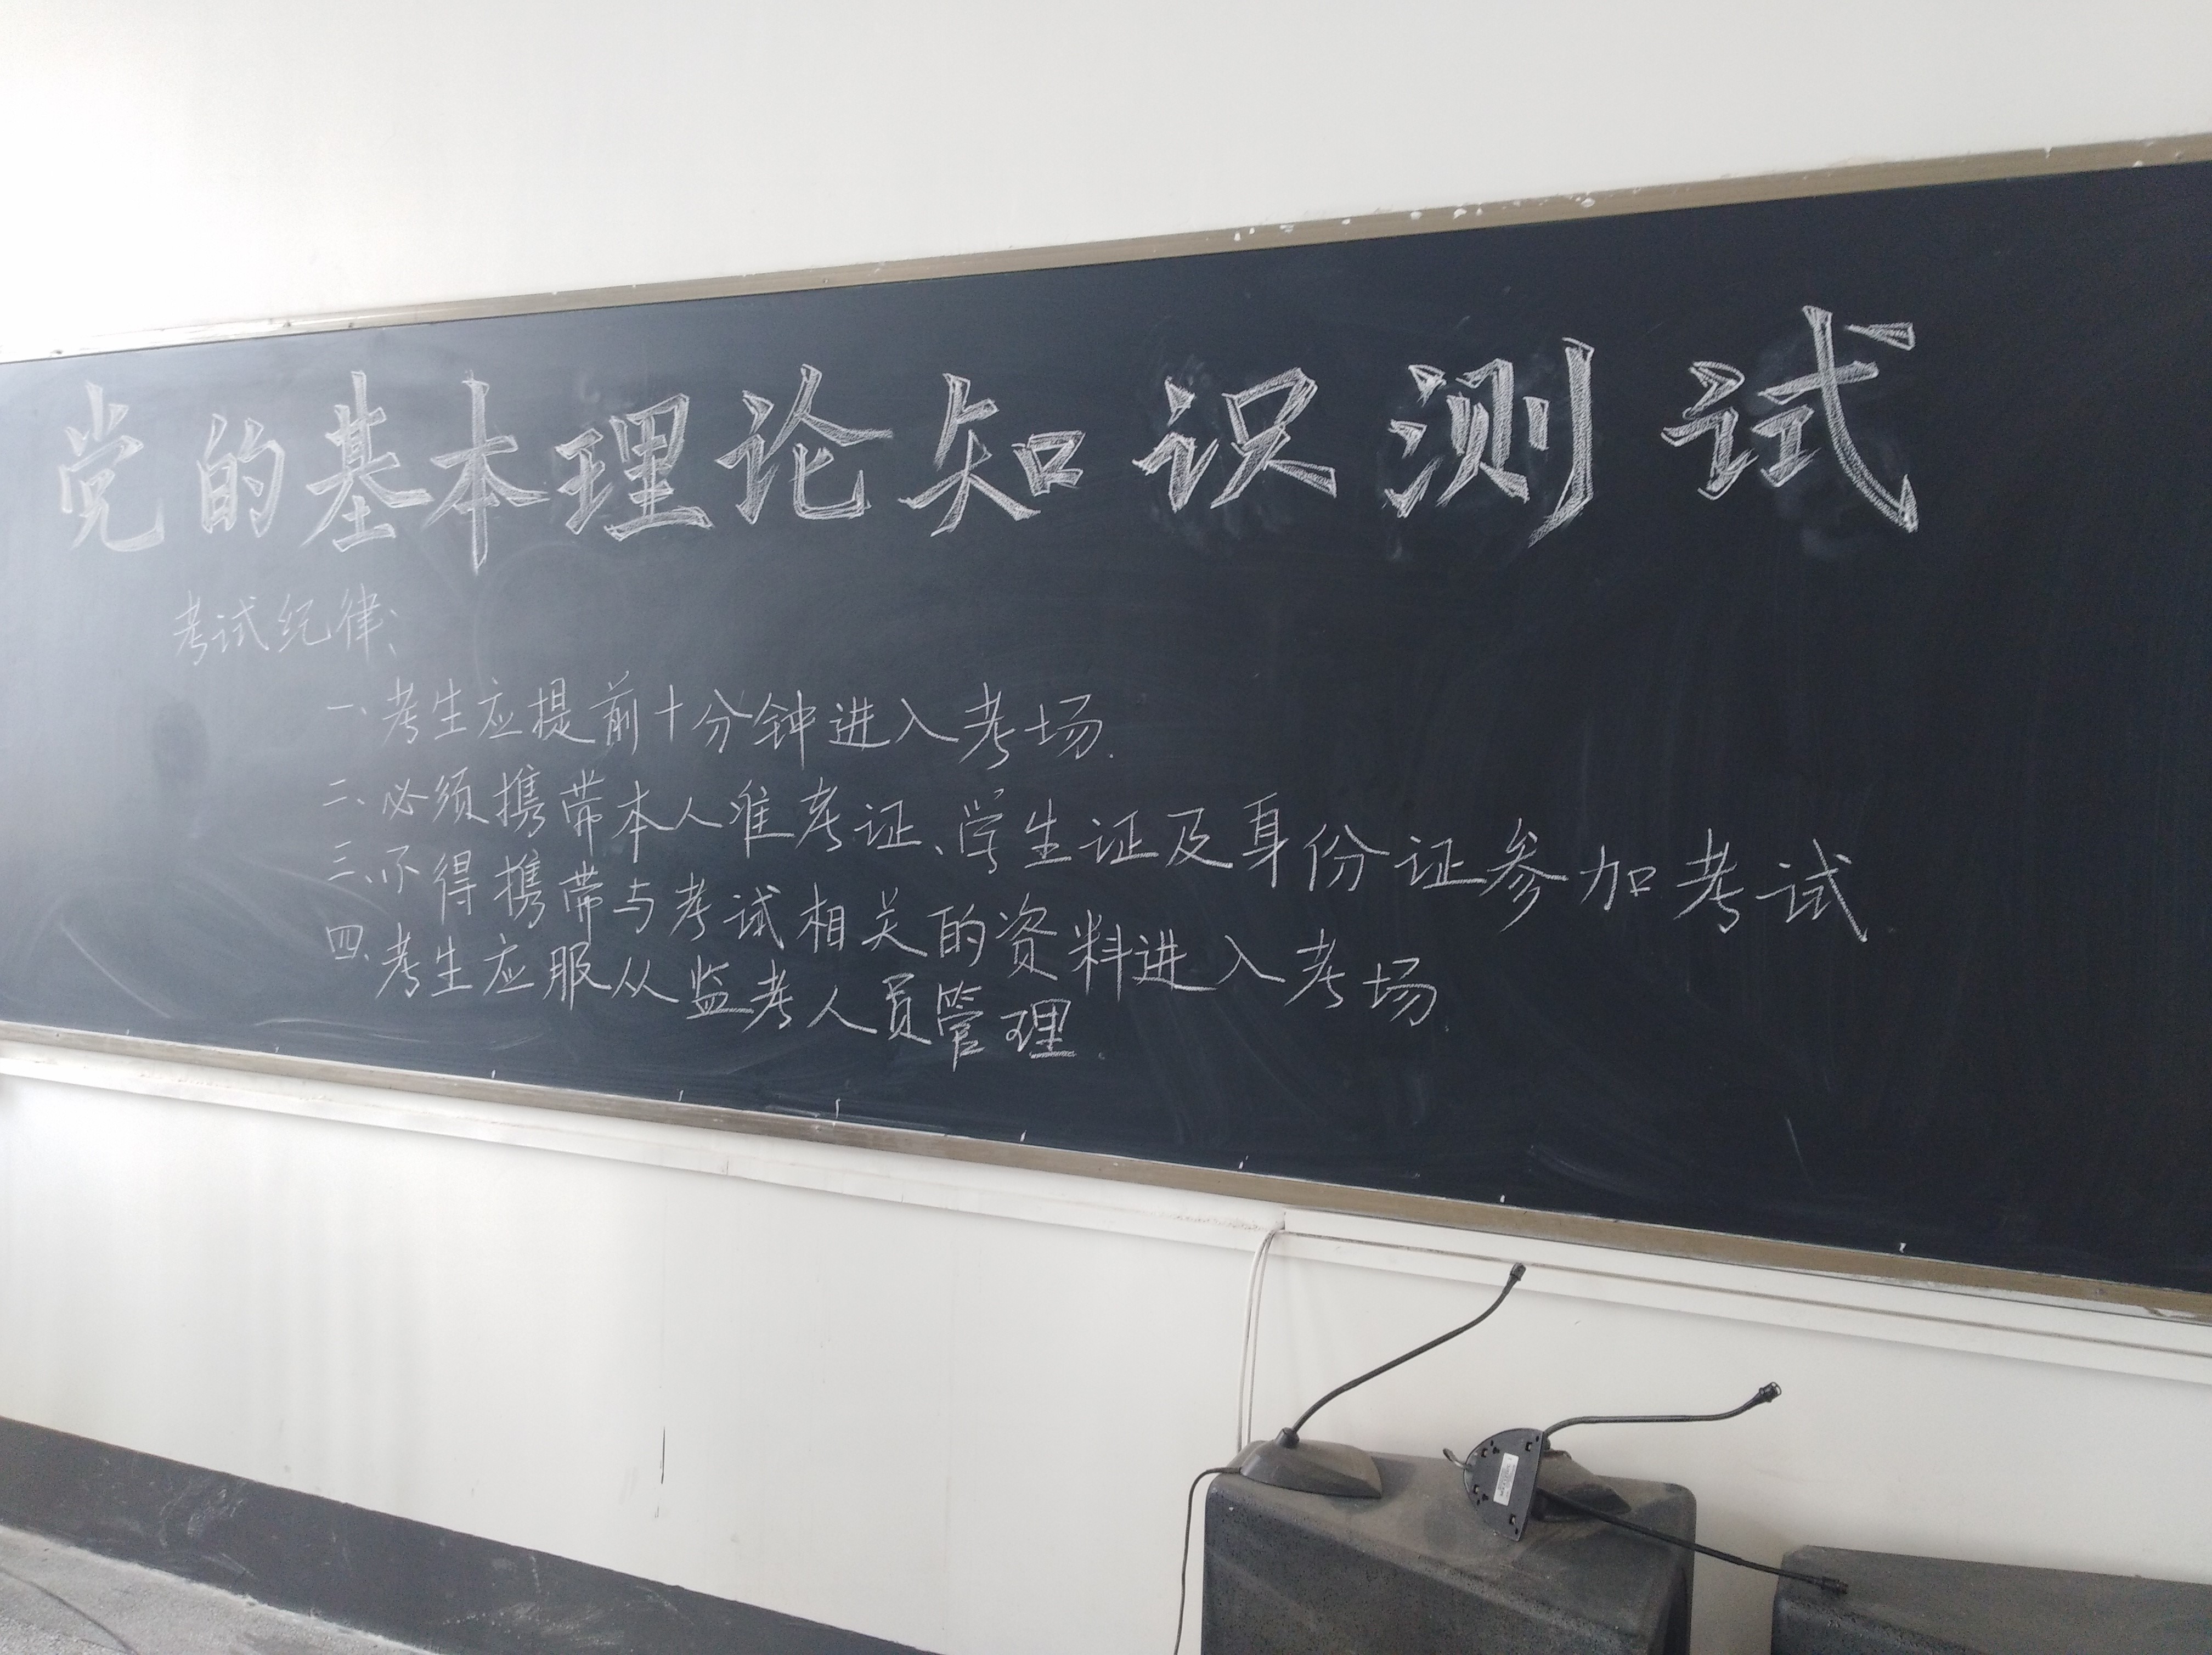 党的基本理论知识测试
考试纪律:
一、考生应提前十分钟进入考场.
二、必须携带本人准考证、学生证及身份证参加考试
三、不得携带与考试相关的资料进入考场.
四.考生应服从监考人员管理.